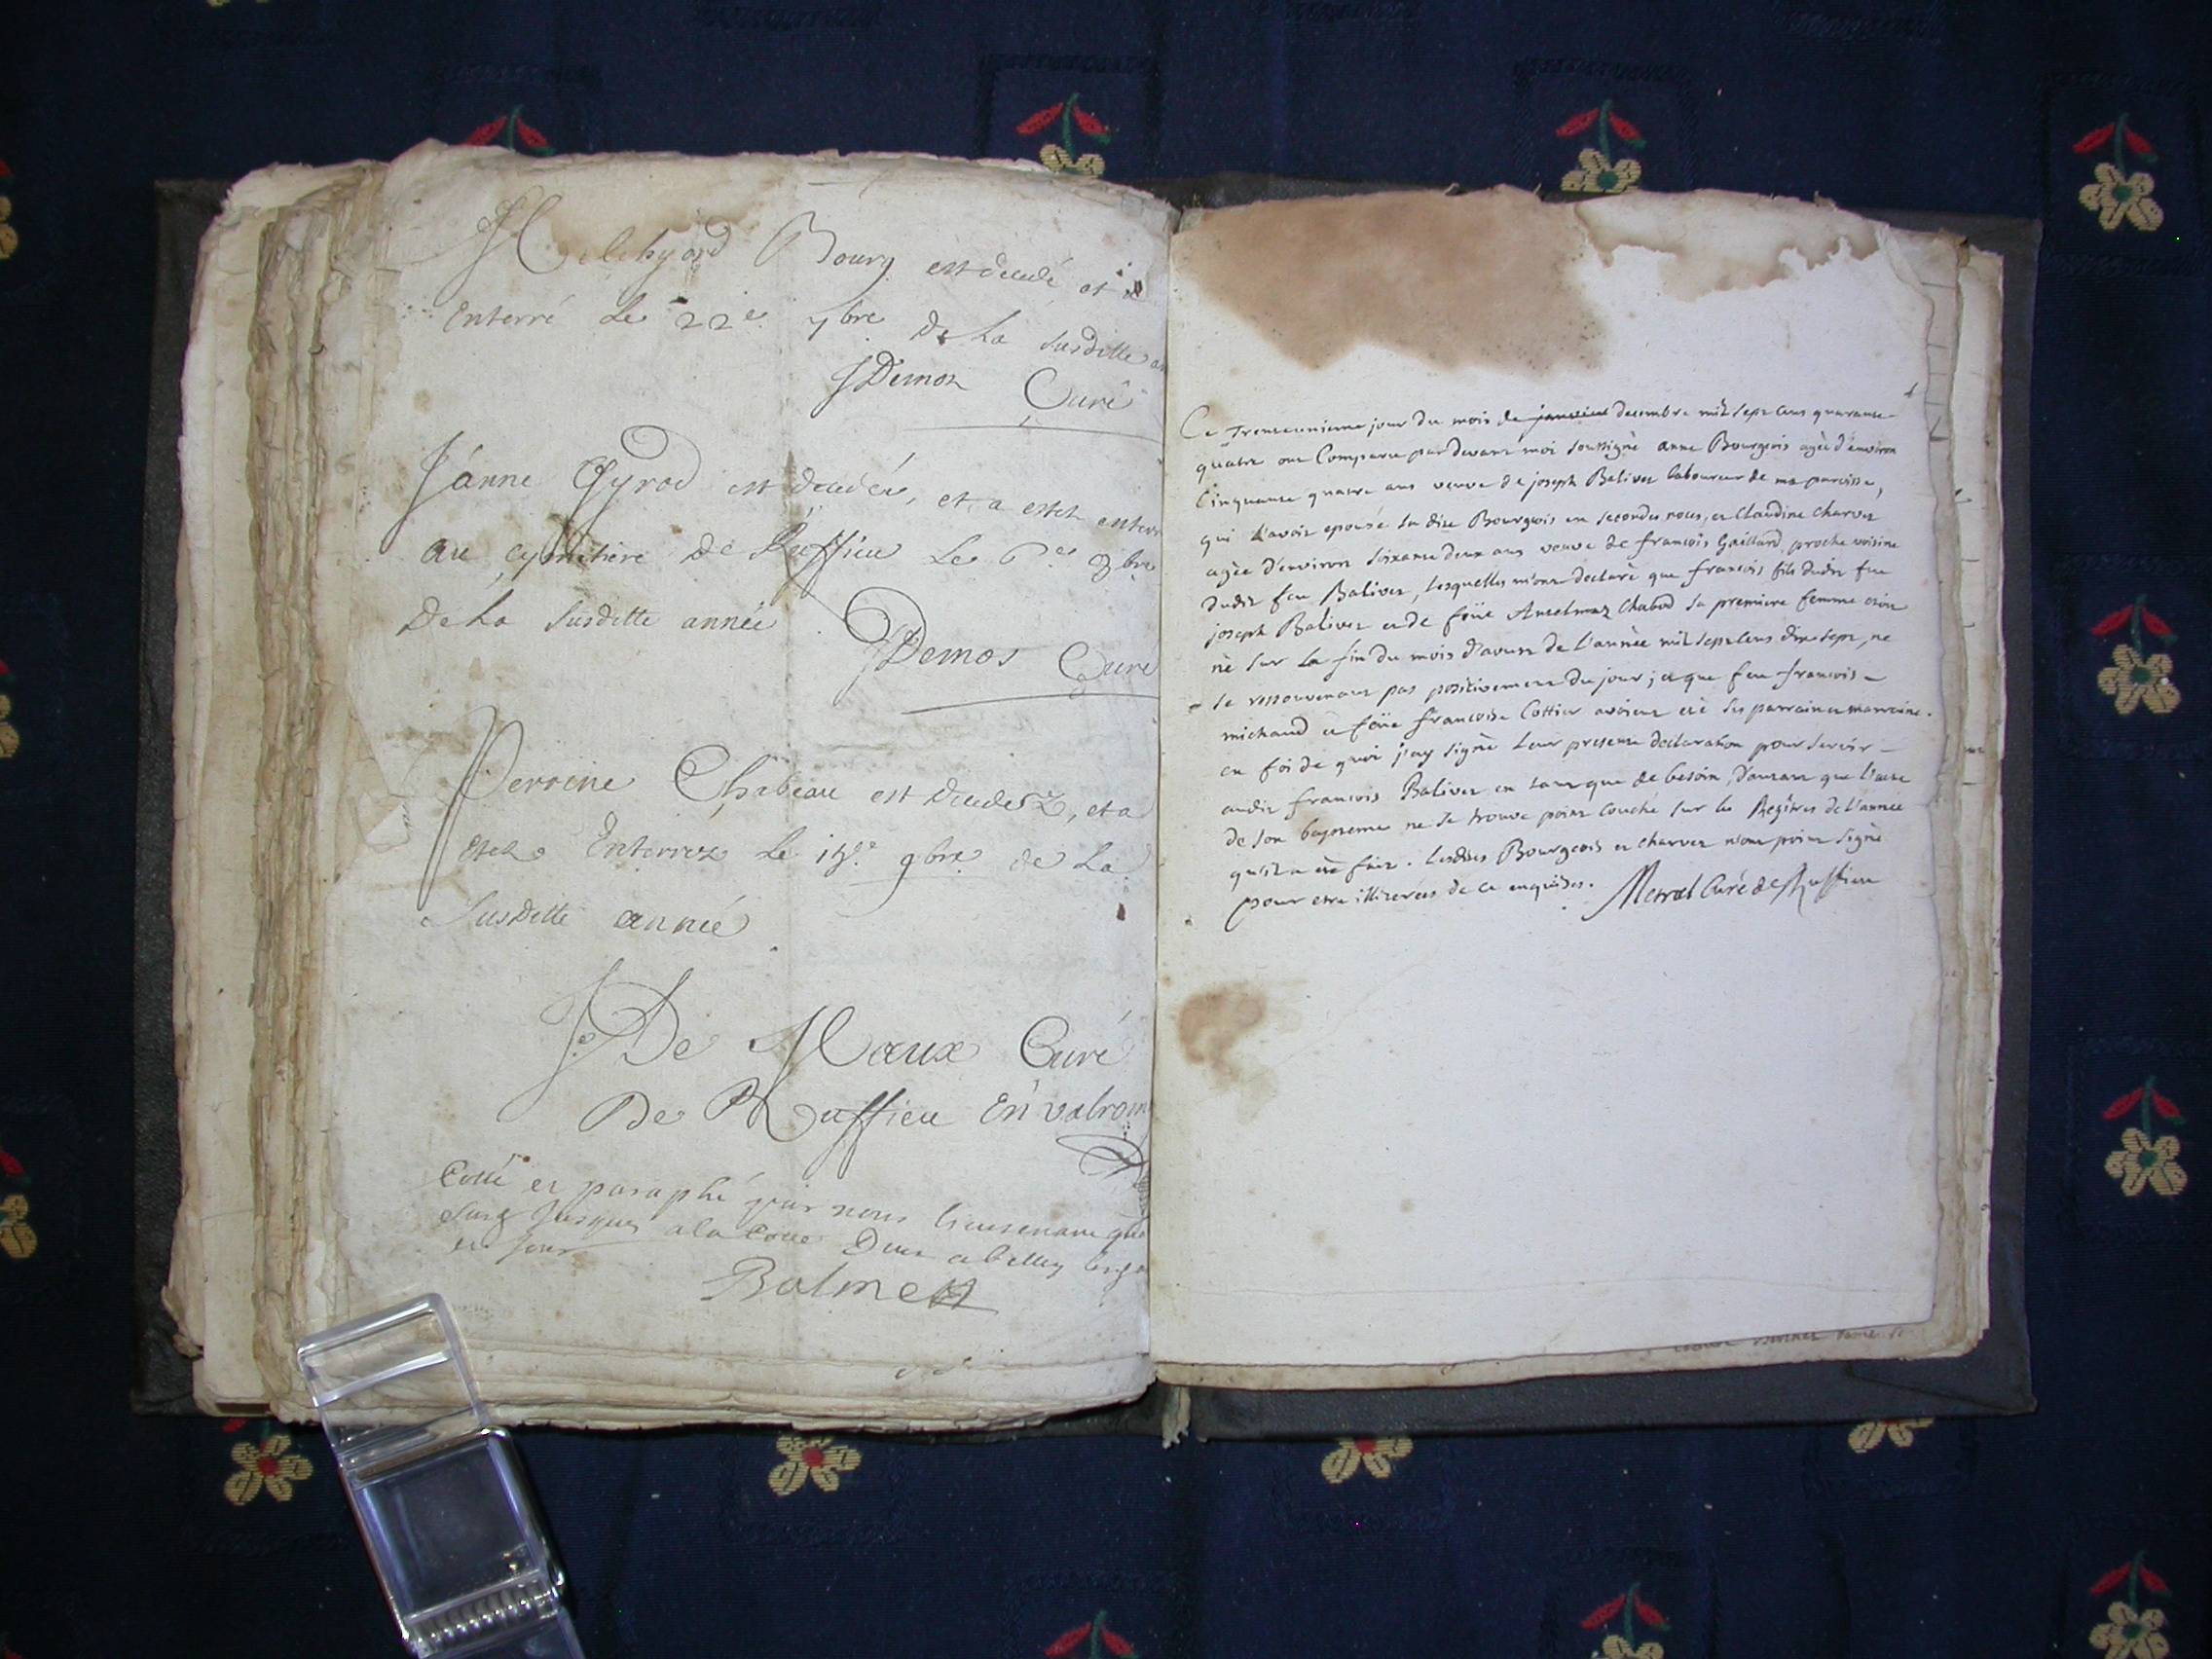 Melchyord Bourg est decedé et a
Enterré Le 22e 7bre De La susditte
JDemoz Curé
Janne Gyrod est decedée, et a estez enterr
au cymetiere De Ruffieu Le 6es 8bre
De La susditte année
JDemos Curé
Perrine Chabeau est decedez, et a
estez Enterrez Le 9bre de La
susditte année
De Maux Curé
De Ruffieu En valrom
Cotté et paraphé par nous lieutenant
jusques a la cotte a belley
et jour
Balme
Ce trenteunieme jour du mois de janvier decembre mil sept cens quarante
quatre ont Comparu par devant moi soussigné anne Bourgeois agée d'environ
Cinquante quatre ans veuve de joseph Balivet laboureur de ma paroisse,
qui avoit epousé la dite Bourgeois en secondes noces, et Claudine Charvet
agée d'environ soixante deux ans veuve de francois Gaillard, proche voisine
dudit feu Balivet, lesquelles m'ont declaré que francois fils dudit feu
joseph Balivet et de foüe Anselmaz Chabod sa premiere femme etoit
né sur la fin du mois d'aoust de l'année mil sept cens dix sept, ne
se ressouvenant pas positivement du jour; et que feu francois
michaud et foüe francoise Cottier avoient eté ses parrain et marraine.
en foi de quoi j'ay signé leur presente declaration pour servir
audit francois Balivet en tant que de besoin, d'autant que l'acte
de son baptesme ne se trouve point couché sur les Registres de l'année
qu'il a eté fait. Lesdites Bourgeois et charvet n'ont point signé
pour etre illiterées de ce enquises. Curé de Ruffieu